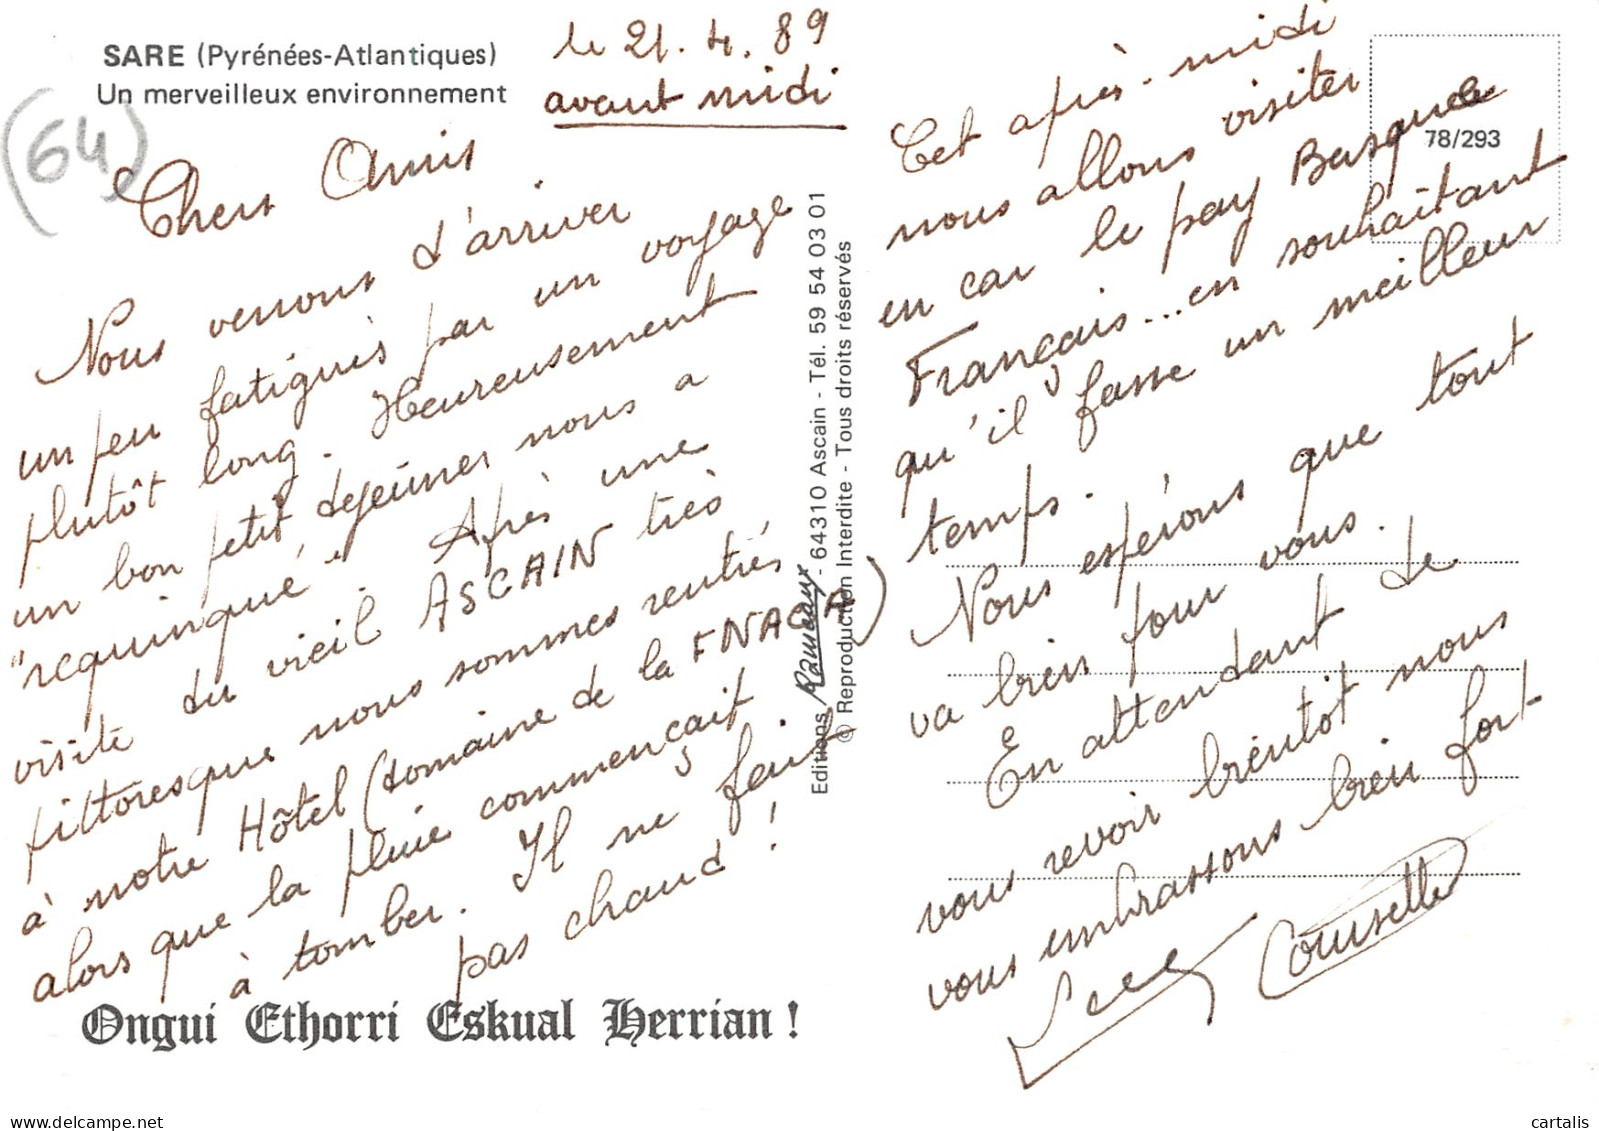 SARE (Pyrénées-Atlantiques)
Un merveilleux environnement
(64)
le 21.4.89
avant midi
Chers Amis
Nous venons d'arriver
un peu fatigués par un voyage
plutôt long. Heureusement
un bon petit dejeûner nous a
"requinqué". Après une
visite du vieil ASCAIN très
pittoresque nous sommes rentrés
à notre Hôtel (domaine de la FNACA)
alors que la pluie commençait
à tomber. Il ne fait
pas chaud !
Ongui Ethorri Eskual Herrian !
Editions Rameaux - 64310 Ascain - Tél. 59 54 03 01
© Reproduction Interdite - Tous droits réservés
78/293
Cet après-midi
nous allons visiter
en car le pay Basque
Français... en souhaitant
qu'il fasse un meilleur
temps.
Nous espérons que tout
va bien pour vous.
En attendant de
vous revoir bientôt nous
vous embrassons bien fort
cartalis.com